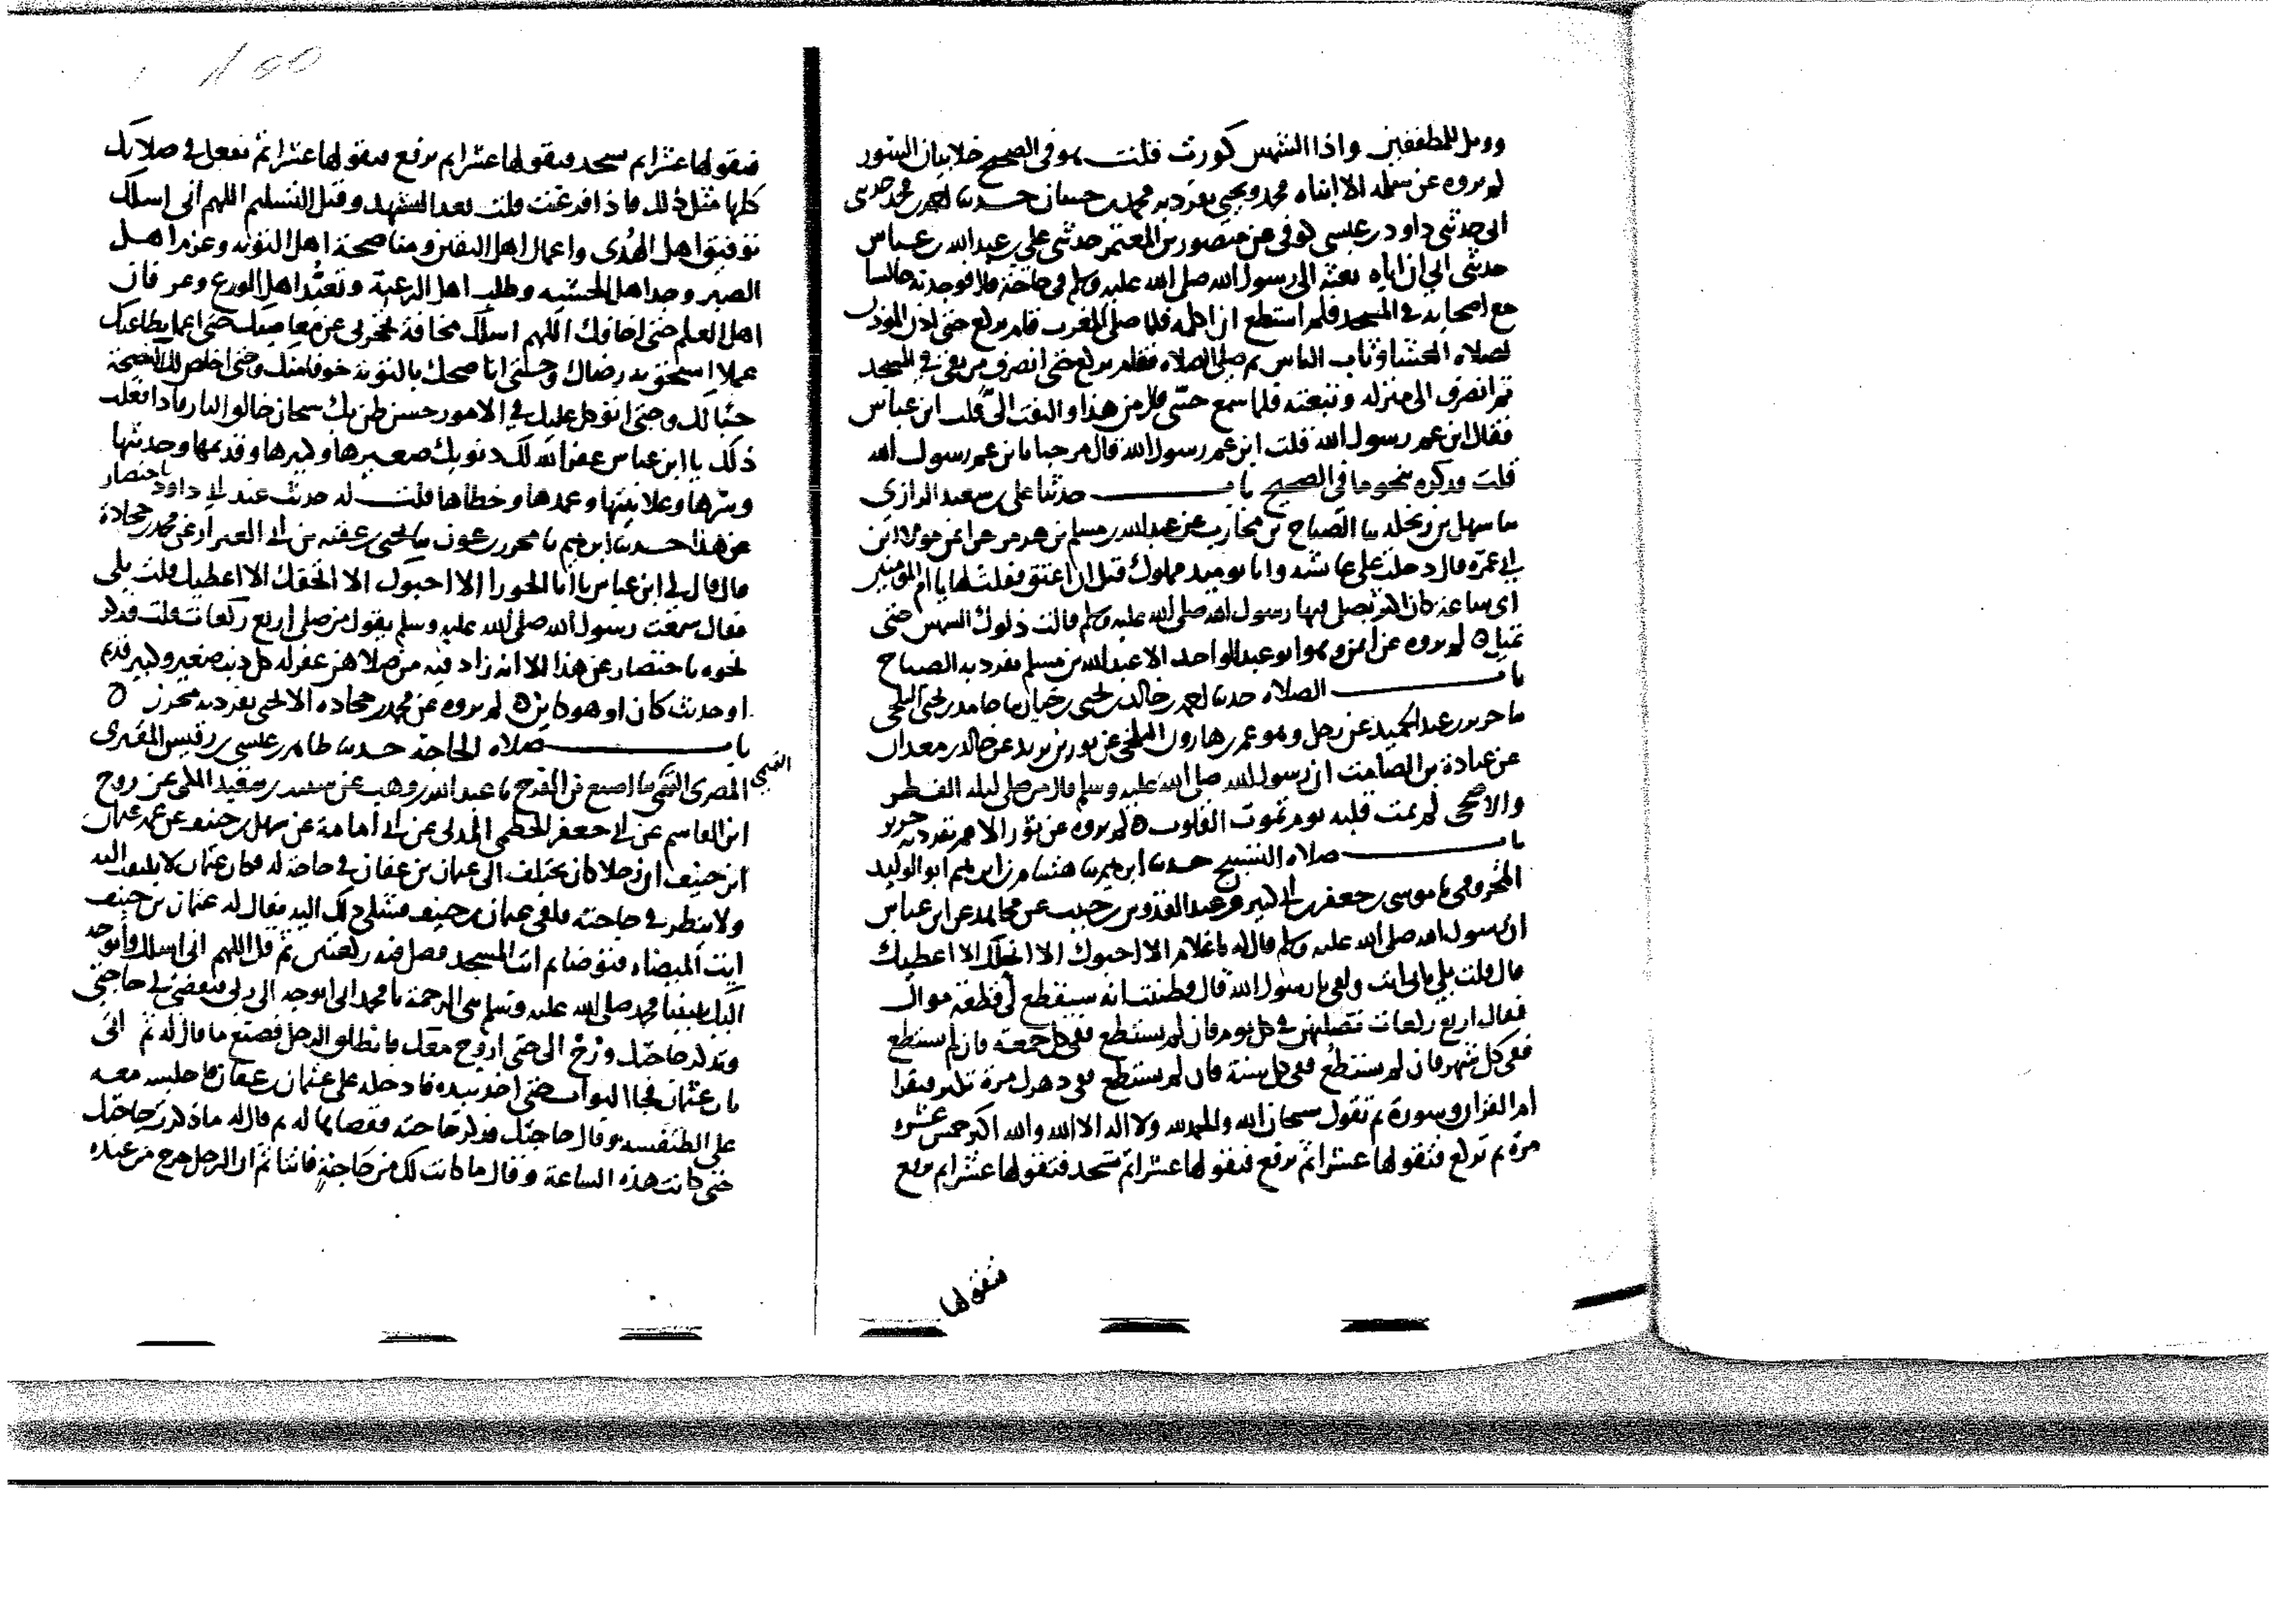 وويل للمطففين واذا الشمس كورت قلت هو في الصحيح خلا بيان السور
لم يروه عن سلمة الا ابناه محمد ويحيى تفرد به محمد بن حسان حدثنا احمد بن محمد حدثني
ابي حدثني داود بن عيسى كوفي عن منصور بن المعتمر حدثني علي بن عبد الله بن عباس
حدثني ابي ان اباه بعثه الى رسول الله صلى الله عليه وسلم في حاجة قال فوجدته جالسا
مع اصحابه في المسجد فلم استطع ان اكلمه فلما صلى المغرب قام يركع حتى اذن المؤذن
لصلاة العشا وثاب الناس ثم صلى الصلاة فقام يركع حتى انصرف من بقي في المسجد
ثم انصرف الى منزله وتبعته فلما سمع حسي قال من هذا والتفت الي قلت ابن عباس
فقال ابن عم رسول الله قلت ابن عم رسول الله قال مرحبا يا بن عم رسول الله
قلت فذكره بنحو ما في الصحيح باب حدثنا علي بن سعيد الرازي
ثنا سهل بن زنجلة ثنا الصباح بن محارب عن عبد الله بن مسلم بن هرمز عن ايمن مولى ابن
ابي عمرة قال دخلت على عائشة وانا يوميذ مملوك قبل ان اعتق فقلت لها يا ام المؤمنين
اي ساعة كان اكثر يصلي فيها رسول الله صلى الله عليه وسلم قالت دلوك الشمس حتى
تميل لم يروه عن ايمن وهو ابو عبد الواحد الا عبد الله بن مسلم تفرد به الصباح
باب الصلاة حدثنا احمد بن خالد بن يحيى بن حيان ثنا حامد بن يحيى البلخي
ثنا جرير بن عبد الحميد عن رجل وهو عمر بن هارون البلخي عن ثور بن يزيد عن خالد بن معدان
عن عبادة بن الصامت ان رسول الله صلى الله عليه وسلم قال من صلى ليلة الفطر
والاضحى لم يمت قلبه يوم تموت القلوب لم يروه عن ثور الا عمر تفرد به جرير
باب صلاة التسبيح حدثنا ابراهيم ثنا هشام بن ابراهيم ابو الوليد
المخزومي ثنا موسى بن جعفر بن ابي كثير عن عبد القدوس بن حبيب عن مجاهد عن ابن عباس
ان رسول الله صلى الله عليه وسلم قال له يا غلام الا احبوك الا انحلك الا اعطيك
قال قلت بلى بابي انت وامي يا رسول الله قال فظننت انه سيقطع لي قطعة من مال
فقال اربع ركعات تصليهن في كل يوم فان لم تستطع ففي كل جمعة فان لم تستطع
ففي كل شهر فان لم تستطع ففي كل سنة فان لم تستطع ففي دهرك مرة تكبر فتقرا
ام القران وسورة ثم تقول سبحان الله والحمد لله ولا اله الا الله والله اكبر خمس عشرة
مرة ثم تركع فتقولها عشرا ثم ترفع فتقولها عشرا ثم تسجد فتقولها عشرا ثم ترفع
فتقولها
فتقولها عشرا ثم تسجد فتقولها عشرا ثم ترفع فتقولها عشرا ثم تفعل في صلاتك
كلها مثل ذلك فاذا فرغت قلت بعد التشهد وقبل التسليم اللهم اني اسلك
توفيق اهل الهدى واعمال اهل اليقين ومناصحة اهل التوبة وعزم اهل
الصبر وجد اهل الخشية وطلب اهل الرغبة وتعبد اهل الورع وعرفان
اهل العلم حتى اخافك اللهم اسلك مخافة تحجزني عن معاصيك حتى اعمل بطاعتك
عملا استحق به رضاك وحتى اناصحك بالتوبة خوفا منك وحتى اخلص لك النصيحة
حبا لك وحتى اتوكل عليك في الامور حسن ظن بك سبحان خالق النار فاذا فعلت
ذلك يا ابن عباس غفر الله لك ذنوبك صغيرها وكبيرها وقديمها وحديثها
وسرها وعلانيتها وعمدها وخطاها قلت له حديث عند ابي داود باختصار
عن هذا حدثنا ابراهيم ثنا محرز بن عون ثنا يحيى بن عقبة بن ابي العيزار عن محمد بن جحادة
قال قال لي ابن عباس يا ابا الجوزا الا احبوك الا اتحفك الا اعطيك قلت بلى
فقال سمعت رسول الله صلى الله عليه وسلم يقول من صلى اربع ركعات قلت فذكر
نحوه باختصار عن هذا الا انه زاد فيه من صلاهن غفر له كل ذنب صغير وكبير قديم
او حديث كان او هو كاين لم يروه عن محمد بن جحادة الا يحيى تفرد به محرز
باب صلاة الحاجة حدثنا طاهر بن عيسى بن قيرس المقري
المصري التميمي ثنا اصبغ بن الفرج ثنا عبد الله بن وهب عن شبيب بن سعيد المكي عن روح
ابن القاسم عن ابي جعفر الخطمي المدني عن ابي امامة عن سهل بن حنيف عن عمه عثمان
ابن حنيف ان رجلا كان يختلف الى عثمان بن عفان في حاجة له فكان عثمان لا يلتفت اليه
ولا ينظر في حاجته فلقي عثمان بن حنيف فشكى ذلك اليه فقال له عثمان بن حنيف
ايت الميضاة فتوضا ثم ايت المسجد فصل فيه ركعتين ثم قل اللهم اني اسلك واتوجه
اليك بنبينا محمد صلى الله عليه وسلم نبي الرحمة يا محمد اني اتوجه الى ربي فتقضى لي حاجتي
وتذكر حاجتك ورح الي حتى اروح معك فانطلق الرجل فصنع ما قال له ثم اتى
باب عثمان فجا البواب حتى اخذ بيده فادخله على عثمان بن عفان فاجلسه معه
على الطنفسة وقال حاجتك فذكر حاجته فقضاها له ثم قال له ما ذكرت حاجتك
حتى كانت هذه الساعة وقال ما كانت لك من حاجة فاتنا ثم ان الرجل خرج من عنده